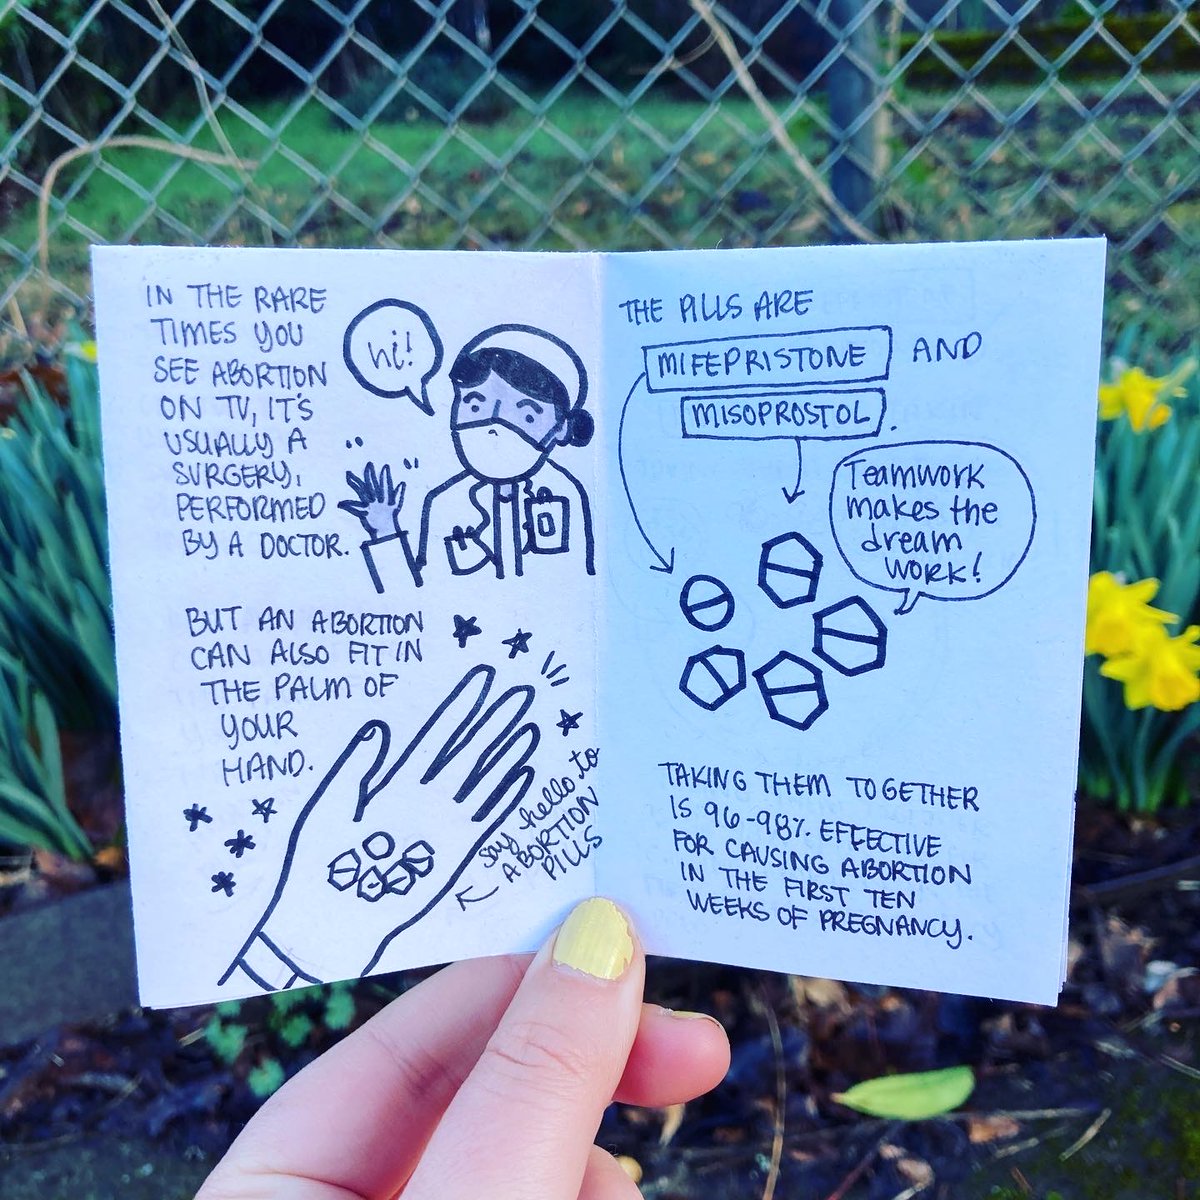 IN THE RARE
TIMES YOU
SEE ABORTION
ON TV, IT'S
USUALLY A
SURGERY,
PERFORMED
BY A DOCTOR.
hi!
BUT AN ABORTION
CAN ALSO FIT IN
THE PALM OF
YOUR
HAND.
say hello to
ABORTION
PILLS
THE PILLS ARE
MIFEPRISTONE AND
MISOPROSTOL.
Teamwork
makes the
dream
WORK!
TAKING THEM TOGETHER
IS 96-98% EFFECTIVE
FOR CAUSING ABORTION
IN THE FIRST TEN
WEEKS OF PREGNANCY.